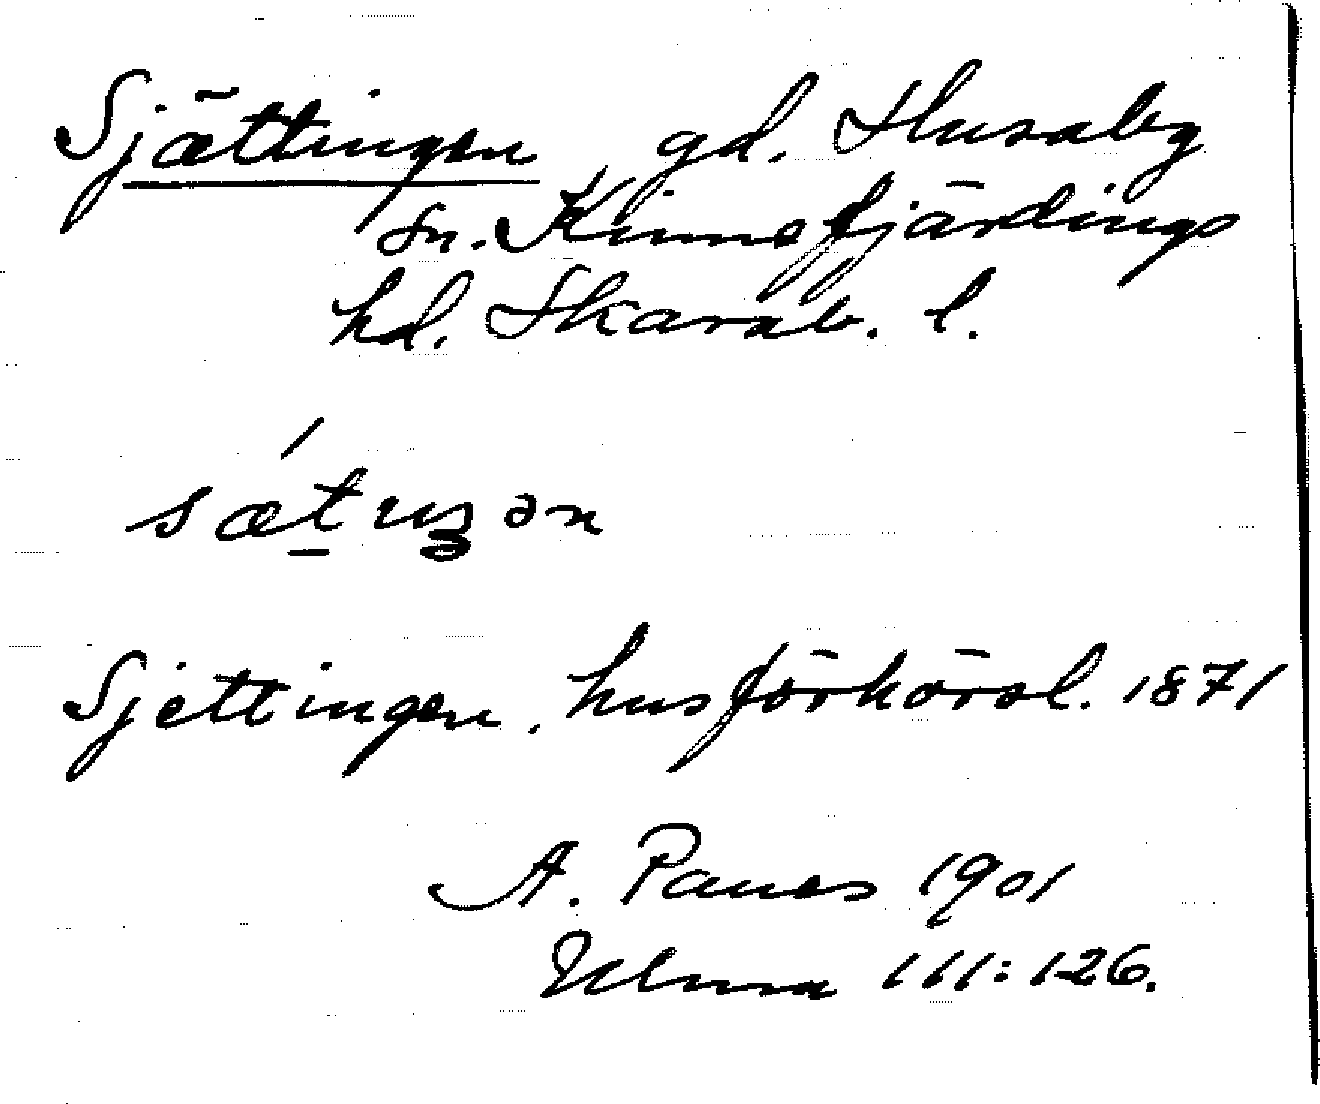 Sjättingen gd. Husaby
sn. Kinnefjärdings
hd. Skarab. l.
Sjettingen, husförhörsl. 1871
A. Ranes 1901
Ulma 111:126.